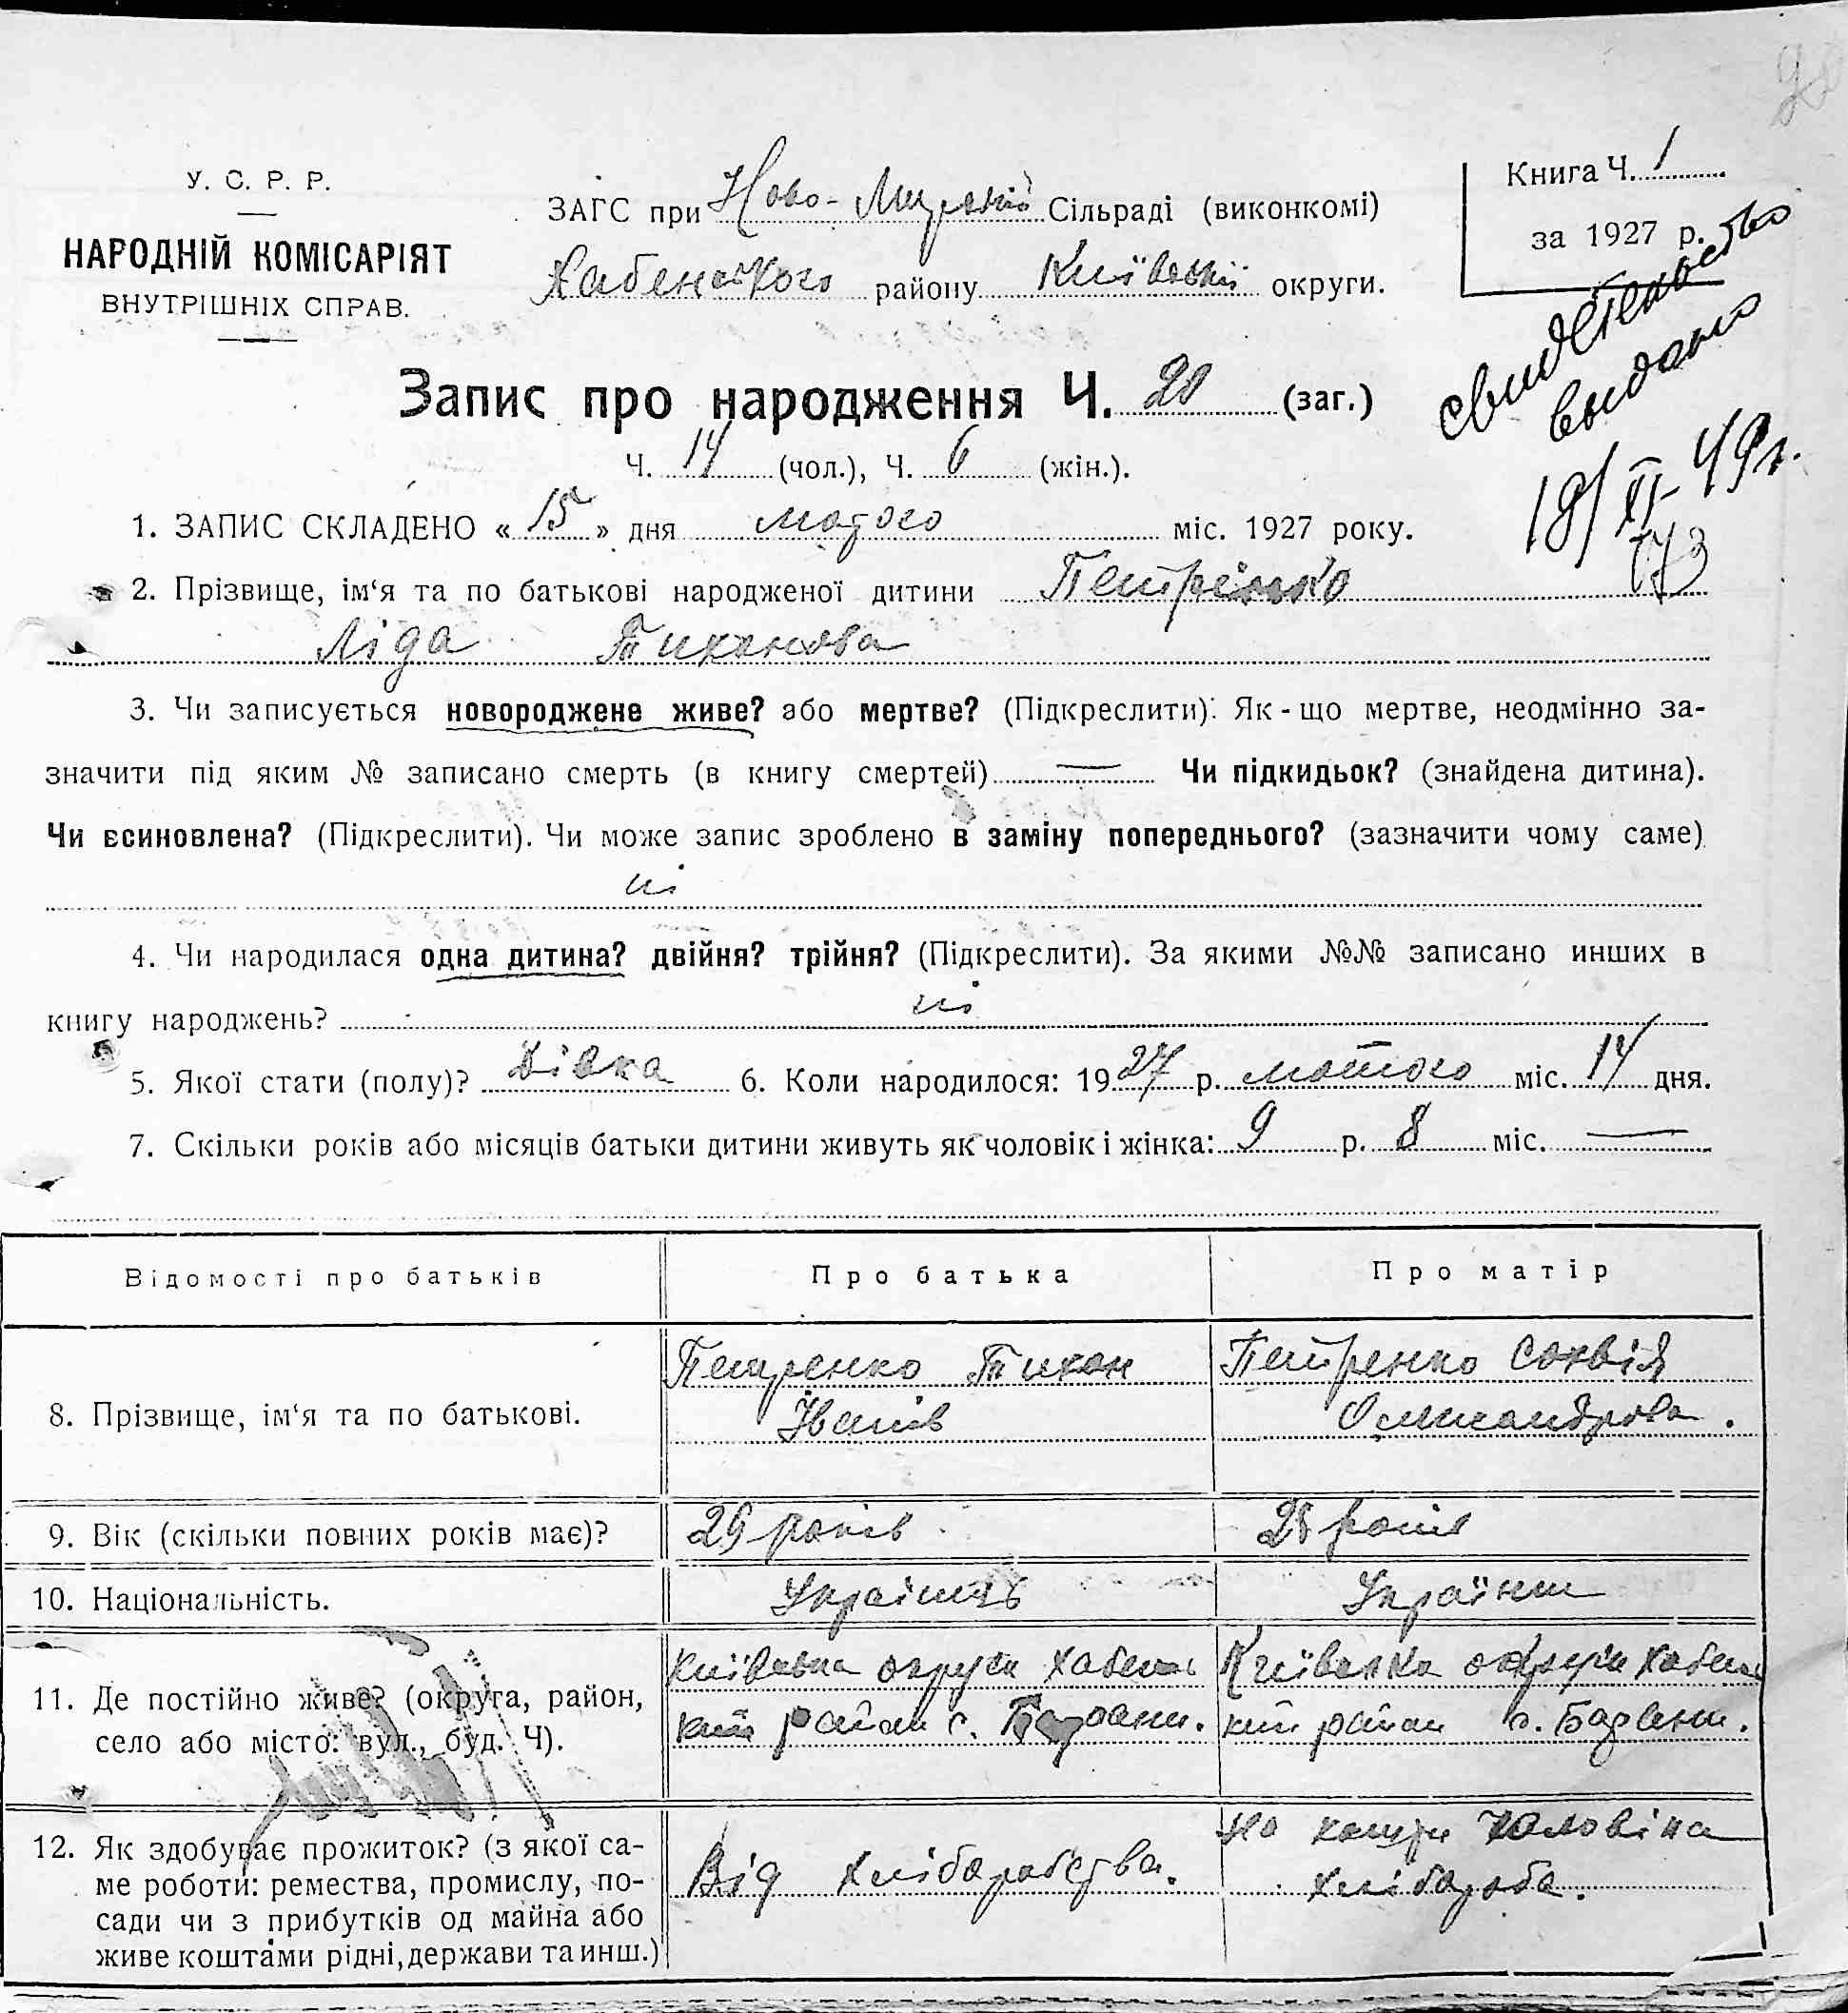 98
У. С. Р. Р.
НАРОДНІЙ КОМІСАРІЯТ
ВНУТРІШНІХ СПРАВ.
ЗАГС при Ново-Мирській Сільраді (виконкомі)
Хабенського району Київської округи.
Книга Ч. 1
за 1927 р.
свидетельство
выдано
18/XI-49г.
Запис про народження Ч. 20 (заг.)
Ч. 14 (чол.), Ч. 6 (жін.).
1. ЗАПИС СКЛАДЕНО « 15 » дня лютого міс. 1927 року.
2. Прізвище, ім'я та по батькові народженої дитини Петренко
Ліда Тихонова
3. Чи записується новороджене живе? або мертве? (Підкреслити). Як-що мертве, неодмінно за-
значити під яким № записано смерть (в книгу смертей) — Чи підкидьок? (знайдена дитина).
Чи всиновлена? (Підкреслити). Чи може запис зроблено в заміну попереднього? (зазначити чому саме)
ні
4. Чи народилася одна дитина? двійня? трійня? (Підкреслити). За якими №№ записано инших в
книгу народжень? ні
5. Якої стати (полу)? Дівка 6. Коли народилося: 1927 р. лютого міс. 14 дня.
7. Скільки років або місяців батьки дитини живуть як чоловік і жінка: 9 р. 8 міс. —
Відомості про батьків Про батька Про матір
8. Прізвище, ім'я та по батькові.
Петренко Тихон
Іванів
Петренко Сохвія
Олександрова.
9. Вік (скільки повних років має)? 29 років 28 років
10. Національність. Українець Українка
11. Де постійно живе? (округа, район,
село або місто: вул., буд. Ч).
Київська округи Хабенсь
кий район с. Бадани.
Київська округи Хабенсь
кий район с. Бадани.
12. Як здобуває прожиток? (з якої са-
ме роботи: ремества, промислу, по-
сади чи з прибутків од майна або
живе коштами рідні, держави та инш.)
Від хліборобства.
На кошти чоловіка
хлібороба.